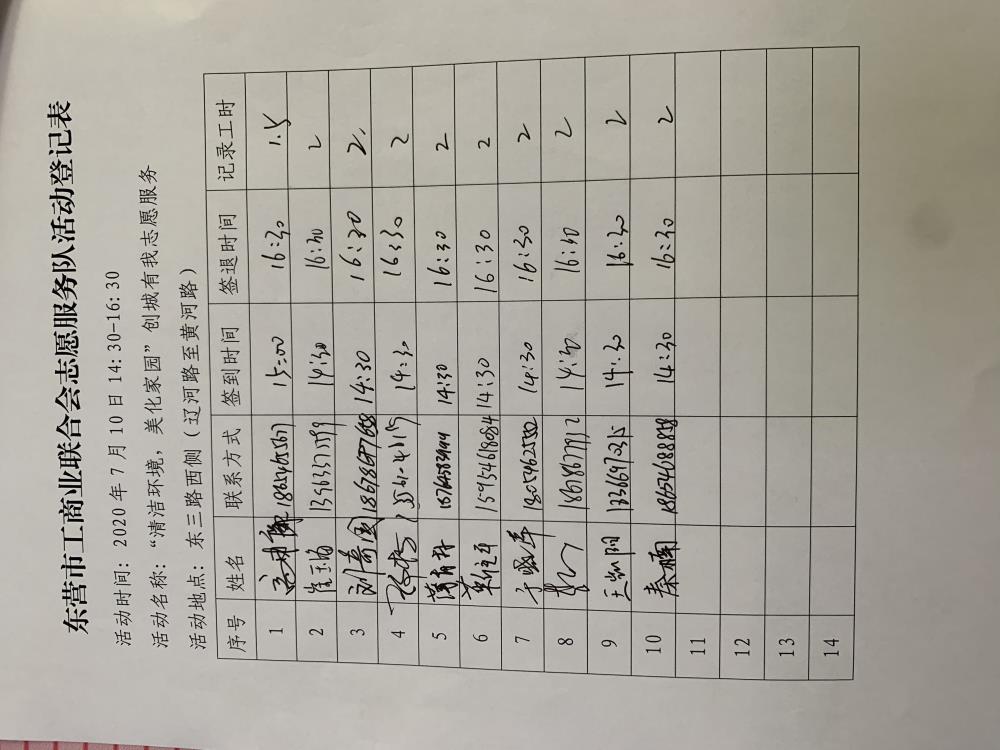 东营市工商业联合会志愿服务队活动登记表
活动时间：2020年7月10日14:30-16:30
活动名称：“清洁环境，美化家园”创城有我志愿服务
活动地点：东三路西侧（辽河路至黄河路）
序号 姓名 联系方式 签到时间 签退时间 记录工时
1 18654655671 15:00 16:30 1.5
2 14:30 16:30 2
3 刘奇国 18678677688 14:30 16:30 2
4 14:30 16:30 2
5 14:30 16:30 2
6 15954618084 14:30 16:30 2
7 18054625552 14:30 16:30 2
8 14:30 16:30 2
9 14:30 16:30 2
10 秦楠 14:30 16:30 2
11
12
13
14